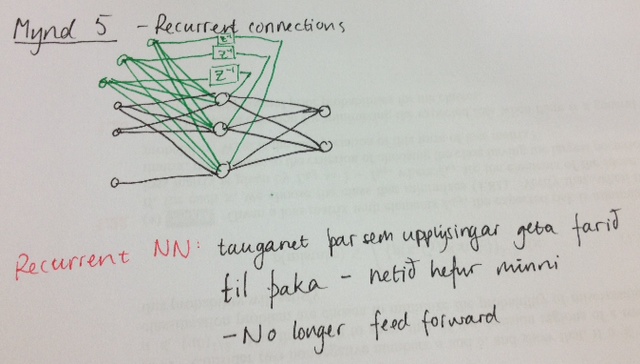 Mynd 5 - Recurrent connections
z⁻¹
z⁻¹
z⁻¹
Recurrent NN: tauganet þar sem upplýsingar geta farið
til þaka - netið hefur minni
- No longer feed forward